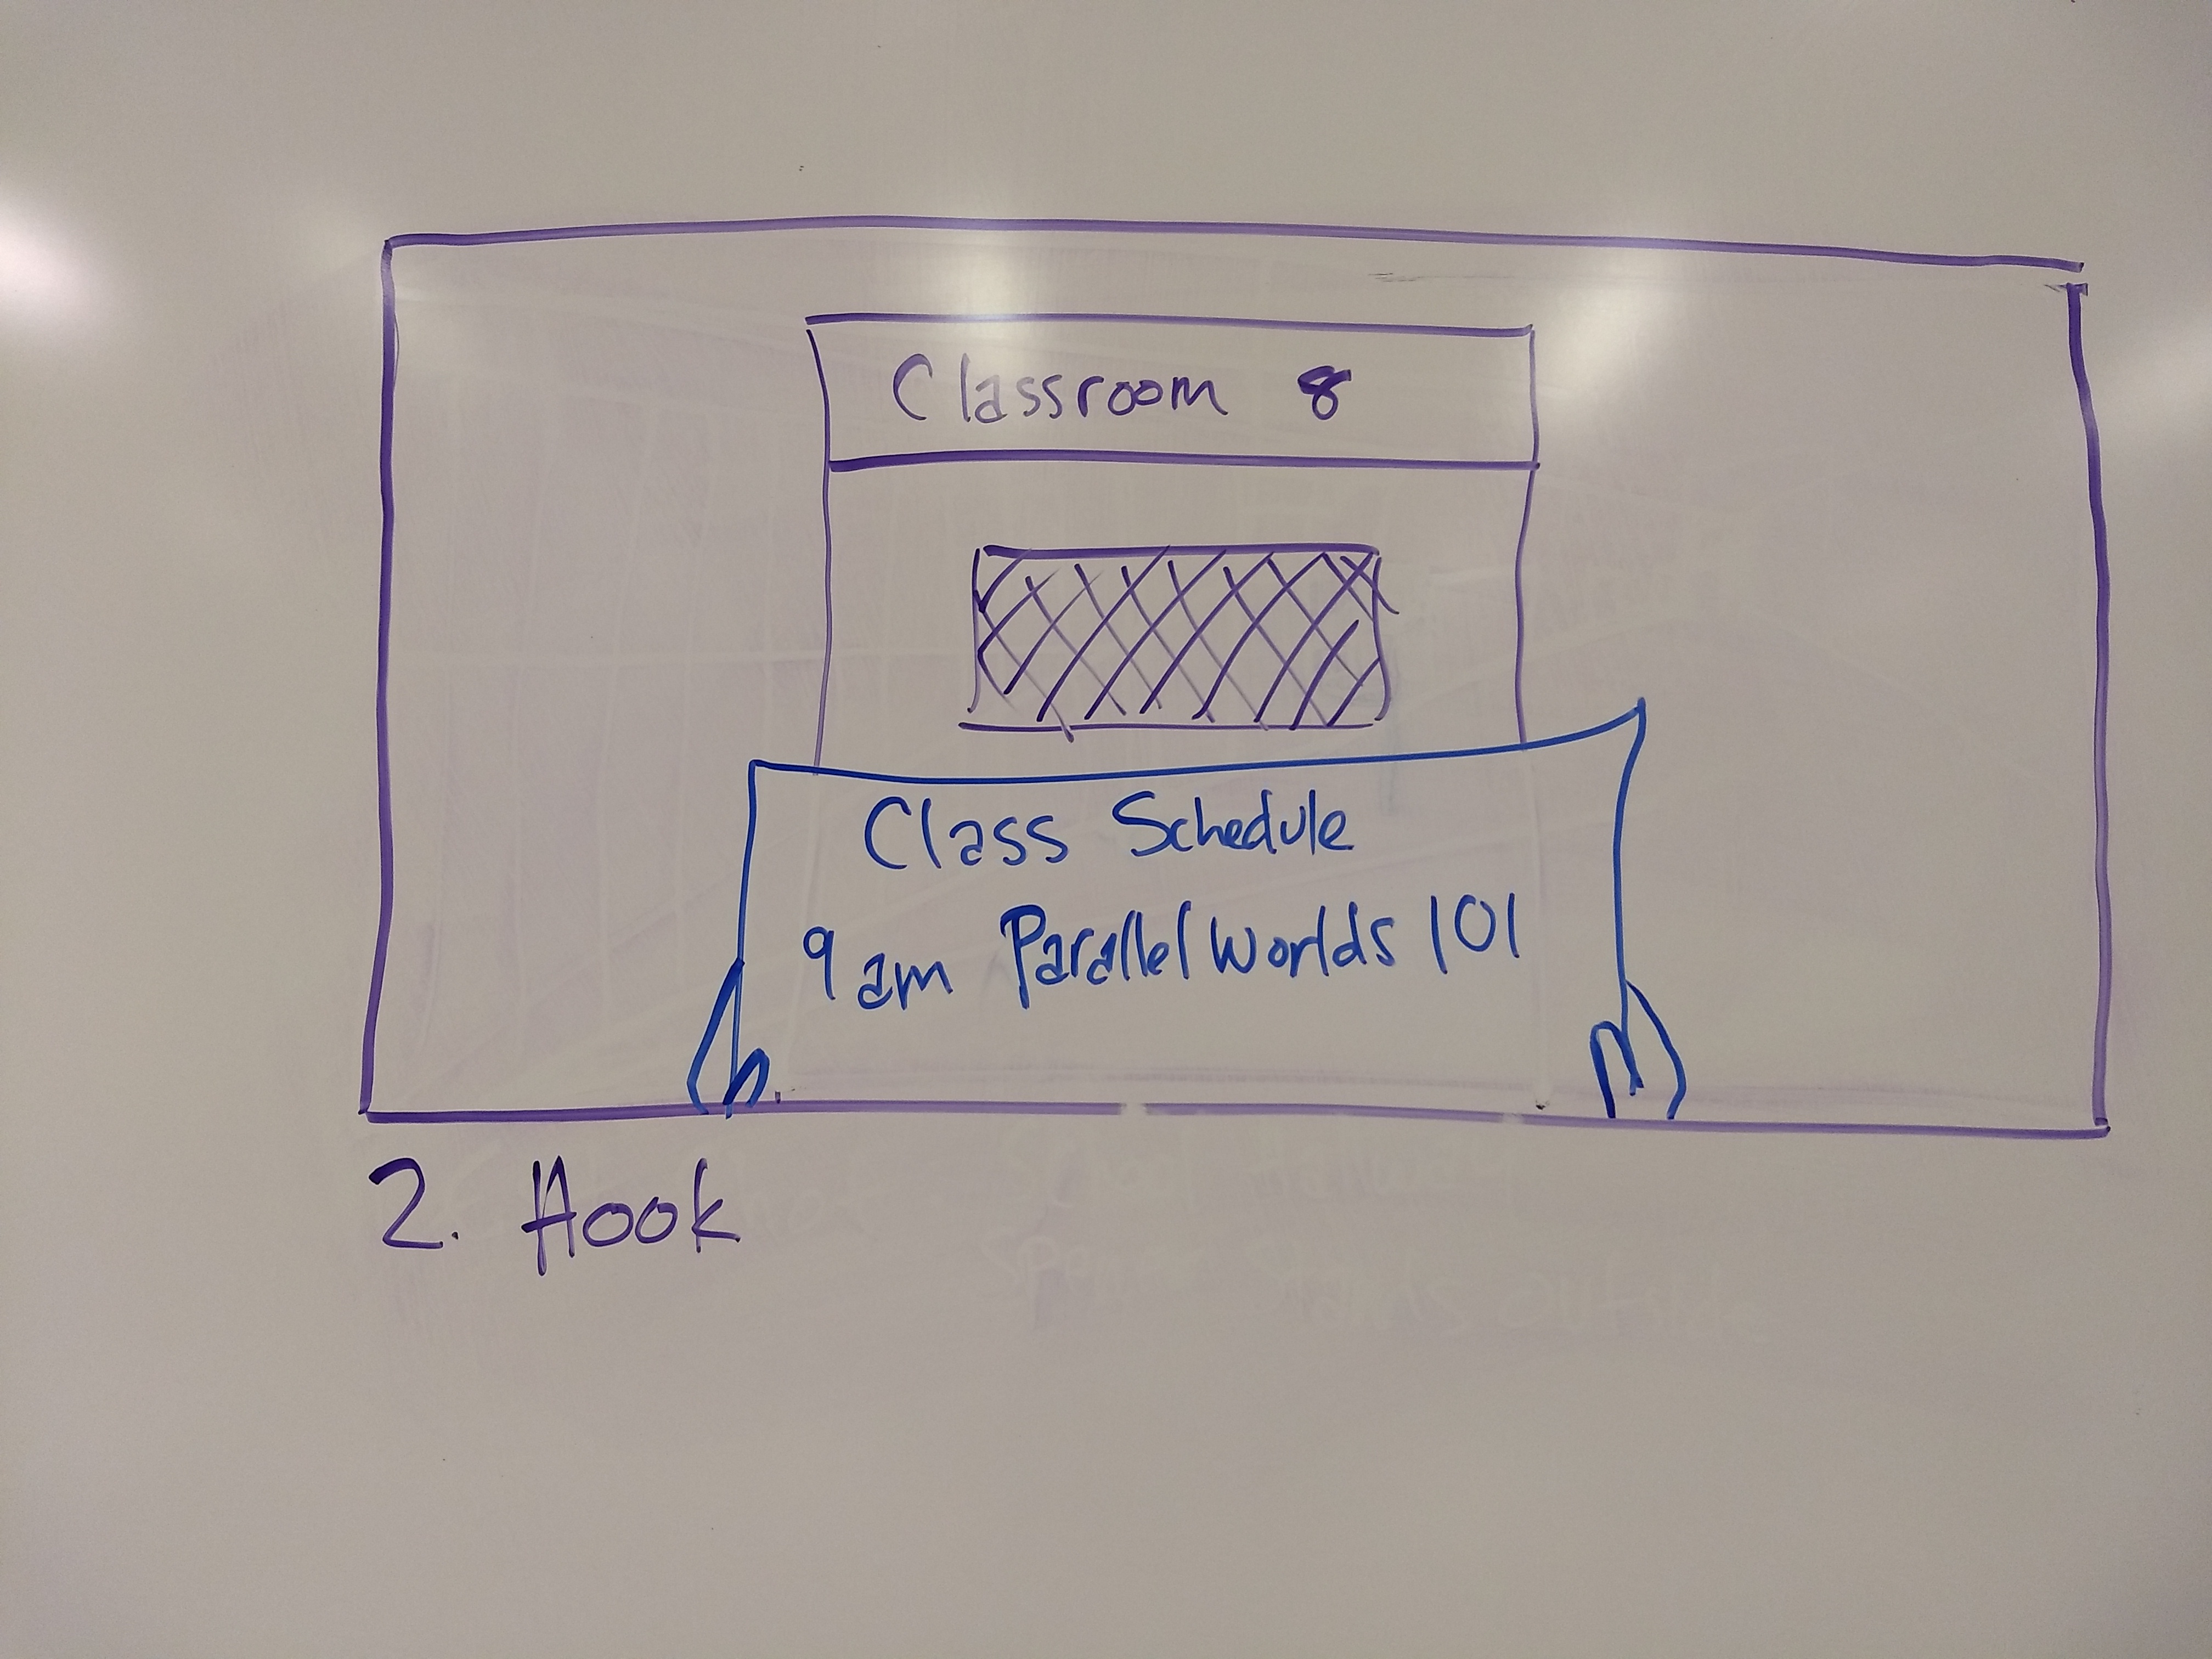 Classroom 8
Class Schedule
9am Parallel Worlds 101
2. Hook